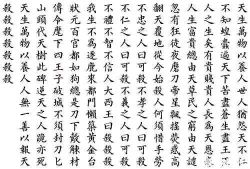 天生萬物以養人世人猶怨天不仁
不知蝗蠹遍天下苦盡蒼生盡王臣
人之生矣有貴賤貴人長為天恩眷
人生富貴總由天草民之窮由天譴
忽有狂徒夜磨刀帝星飄搖熒惑高
翻天覆地從今始殺人何須惜手勞
不忠之人曰可殺不孝之人曰可殺
不仁之人曰可殺不義之人曰可殺
不禮不智不信人大西王曰殺殺殺
我生不為逐鹿來都門懶築黃金台
狀元百官都如狗總是刀下觳觫材
傳令麾下四王子破城不須封刀匕
山頭代天樹此碑逆天之人跪亦死
天生萬物以養人人無一善以報天
殺殺殺殺殺殺殺